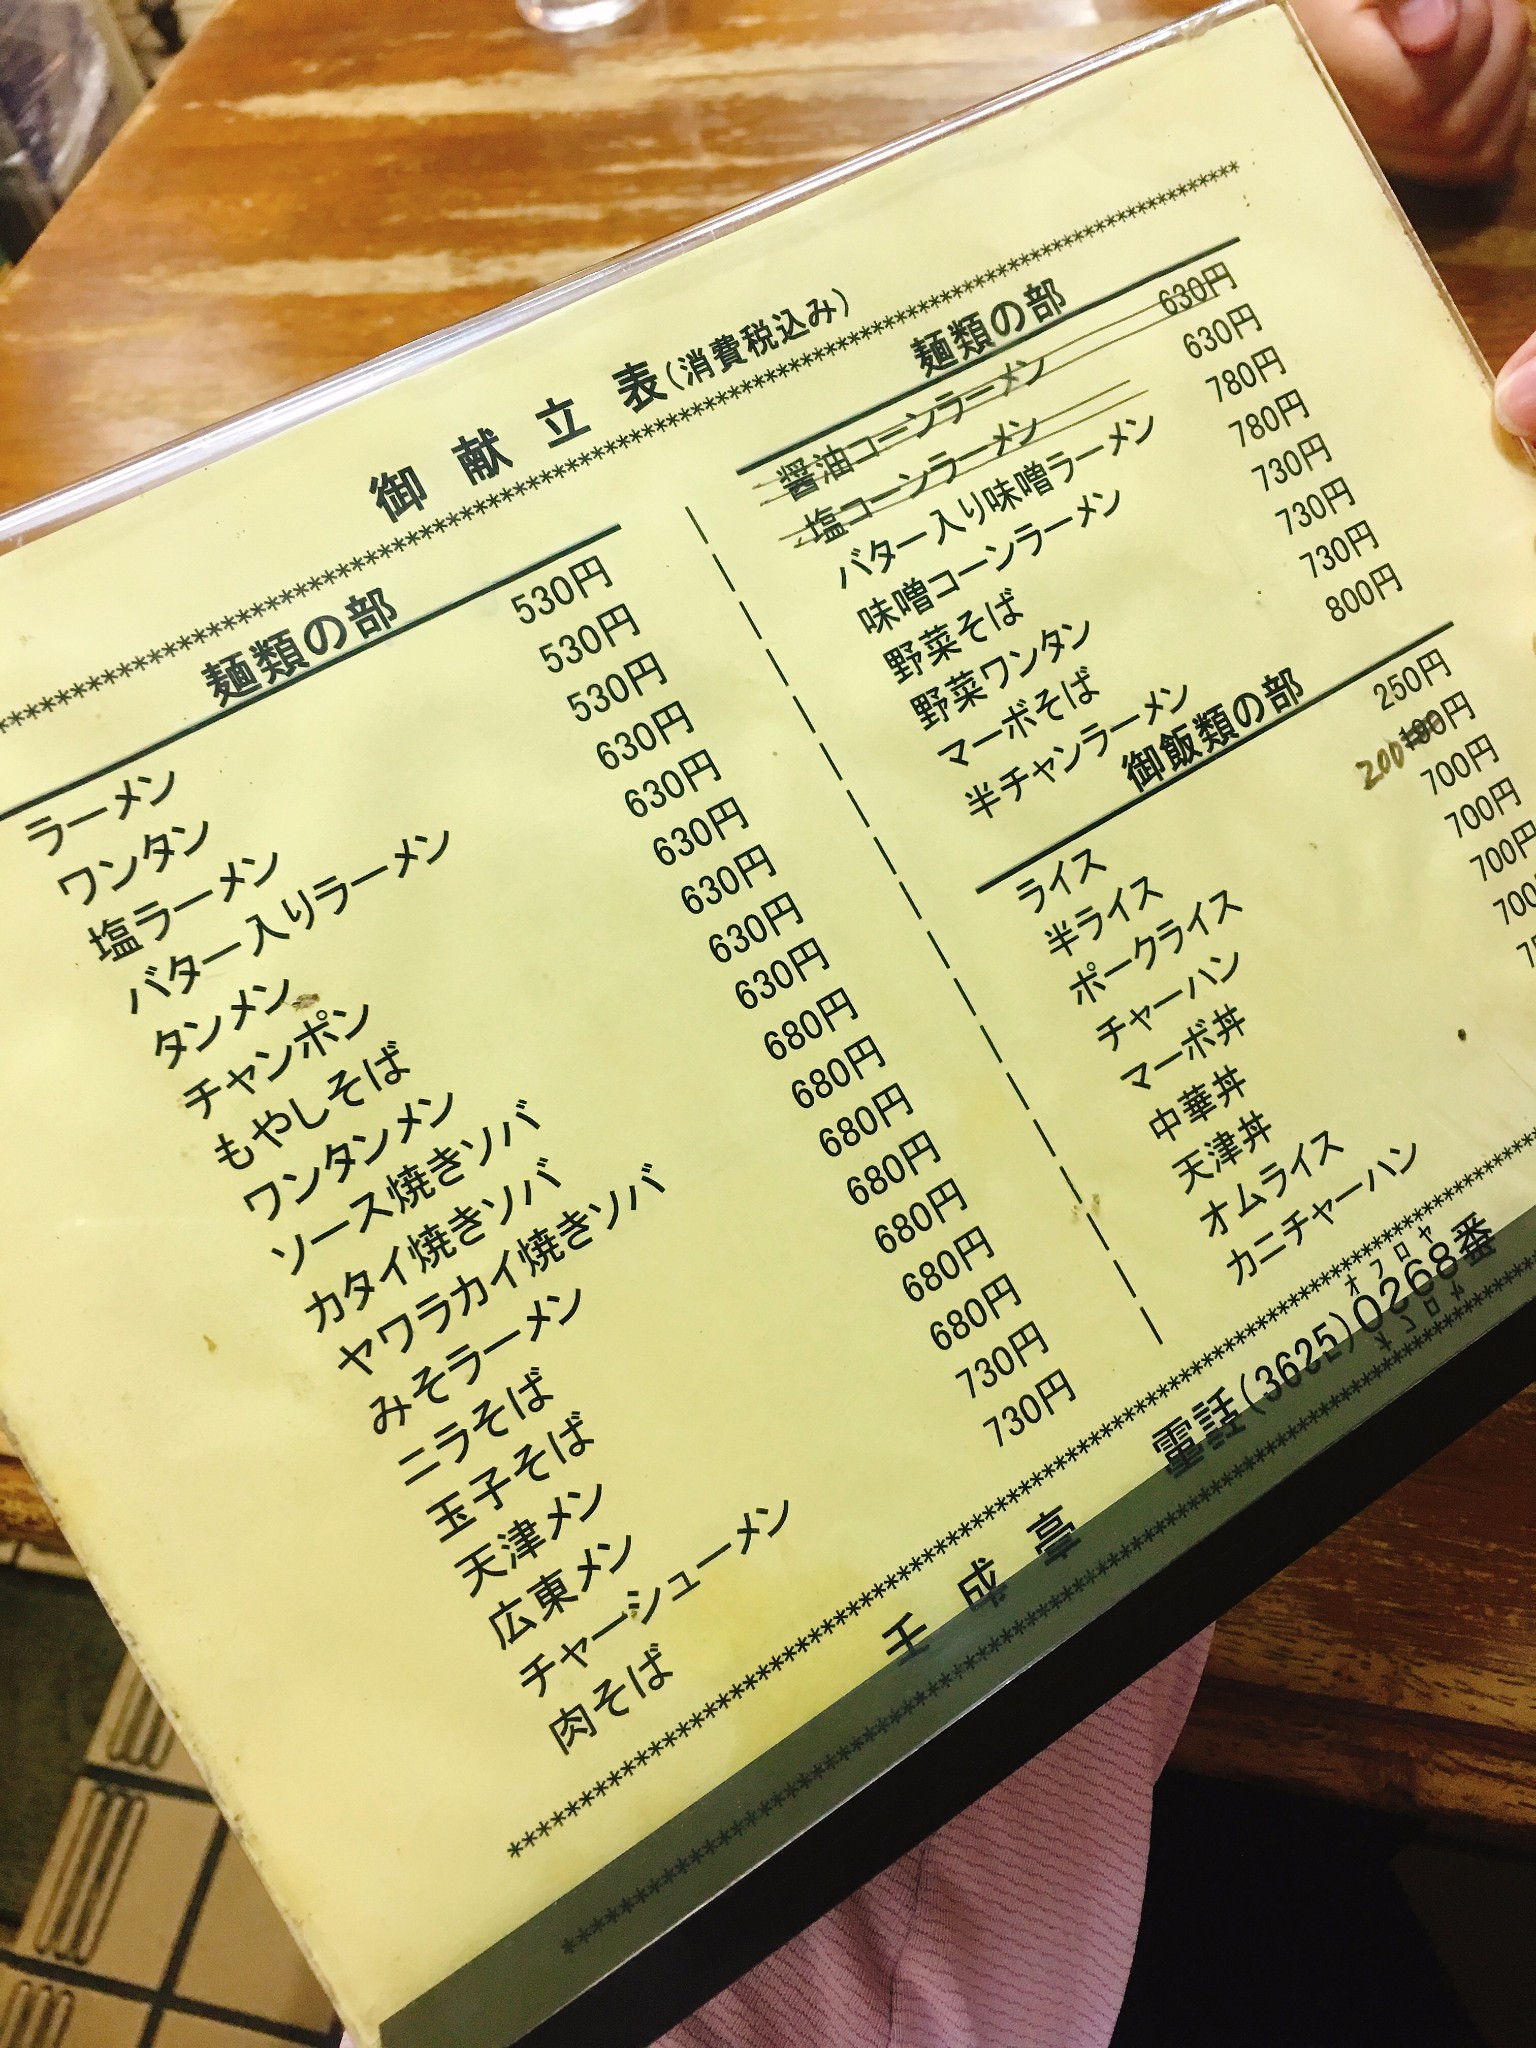 御献立表(消費税込み)
麺類の部
ラーメン 530円
ワンタン 530円
塩ラーメン 530円
バター入りラーメン 630円
タンメン 630円
チャンポン 630円
もやしそば 630円
ワンタンメン 630円
ソース焼きソバ 630円
カタイ焼きソバ 680円
ヤワラカイ焼きソバ 680円
みそラーメン 680円
ニラそば 680円
玉子そば 680円
天津メン 680円
広東メン 680円
チャーシューメン 730円
肉そば 730円
麺類の部
醤油コーンラーメン 630円
塩コーンラーメン 630円
バター入り味噌ラーメン 780円
味噌コーンラーメン 780円
野菜そば 730円
野菜ワンタン 730円
マーボそば 730円
半チャンラーメン 800円
御飯類の部
ライス 250円
半ライス 200円
ポークライス 700円
チャーハン 700円
マーボ丼 700円
中華丼 700
天津丼
オムライス
カニチャーハン
オフロヤ
壬成亭 電話(3625)0268番